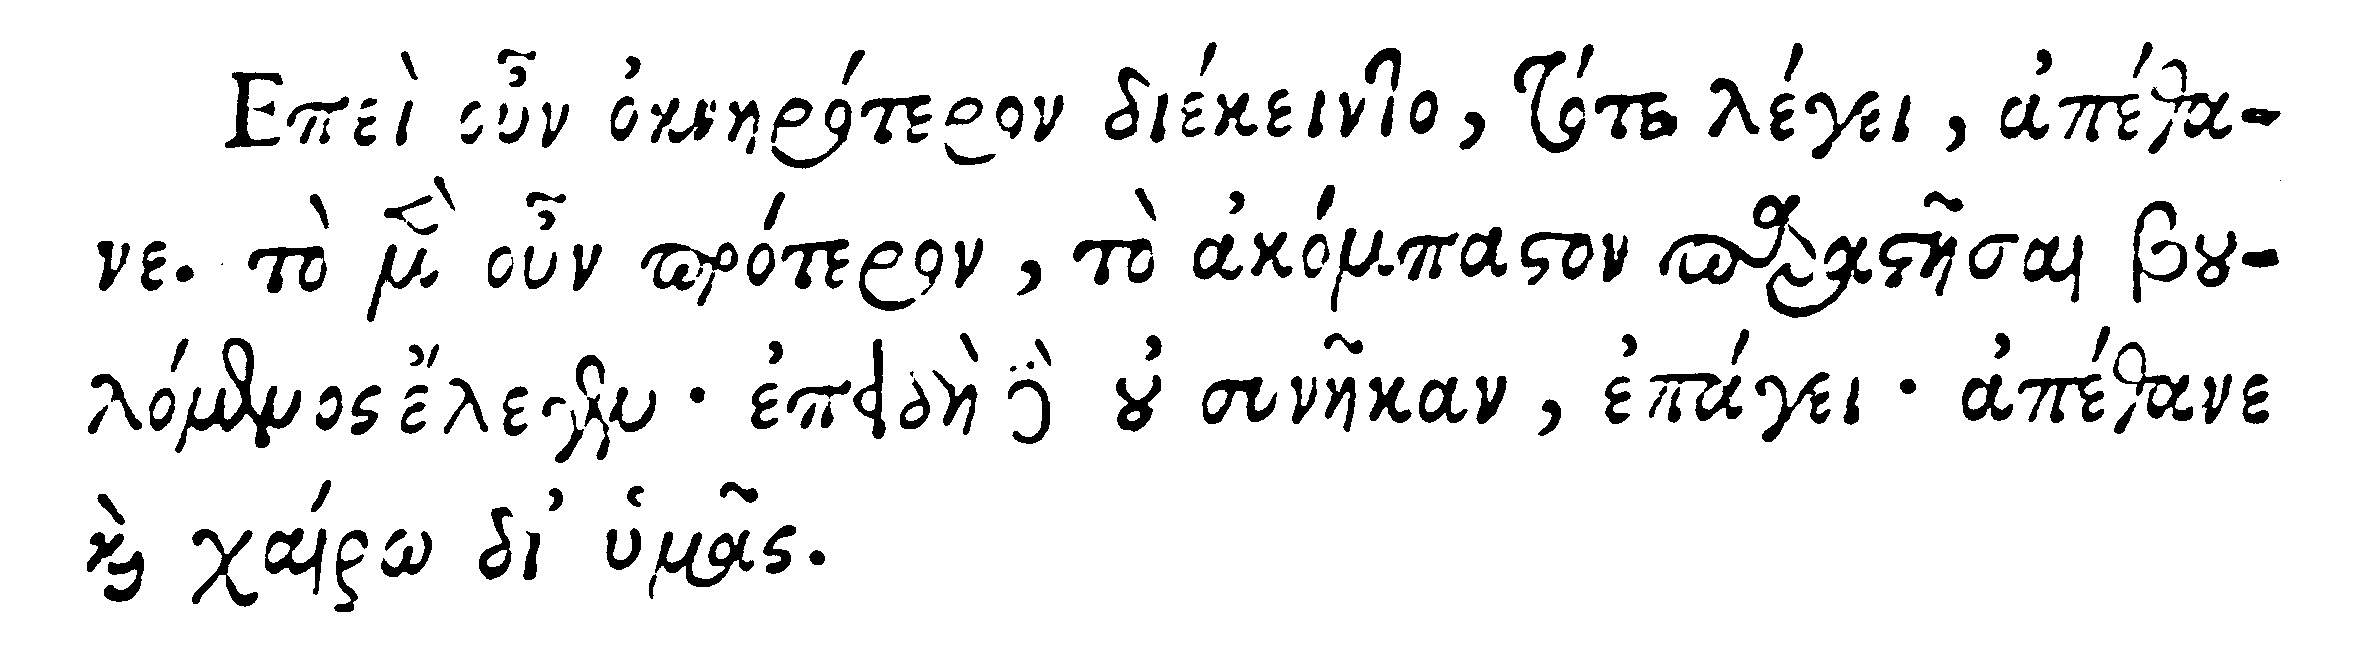 Ἐπεὶ οὖν ὀκνηρότερον διέκειντο, τότε λέγει, ἀπέθα-
νε. τὸ μὲν οὖν πρότερον, τὸ ἀκόμπαστον παραστῆσαι βου-
λόμενος ἔλεγεν· ἐπειδὴ δὲ οὐ συνῆκαν, ἐπάγει· ἀπέθανε
καὶ χαίρω δι' ὑμᾶς.